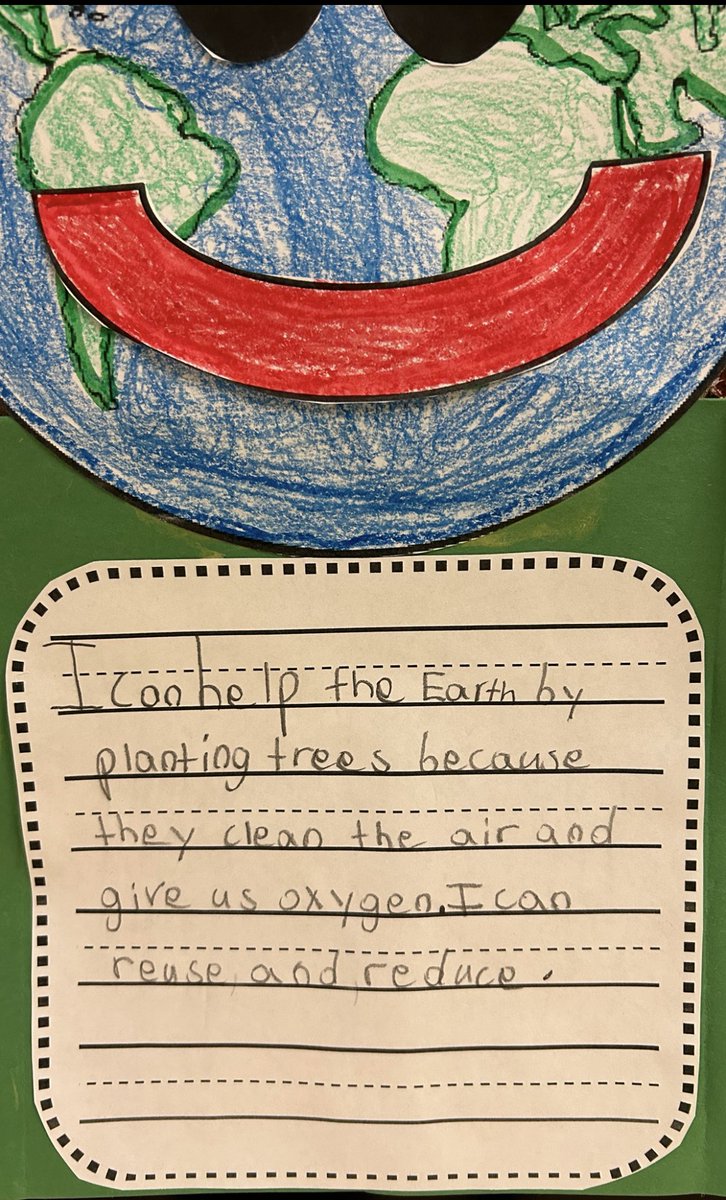 I can help the Earth by
planting trees because
they clean the air and
give us oxygen. I can
reuse, and, reduce.